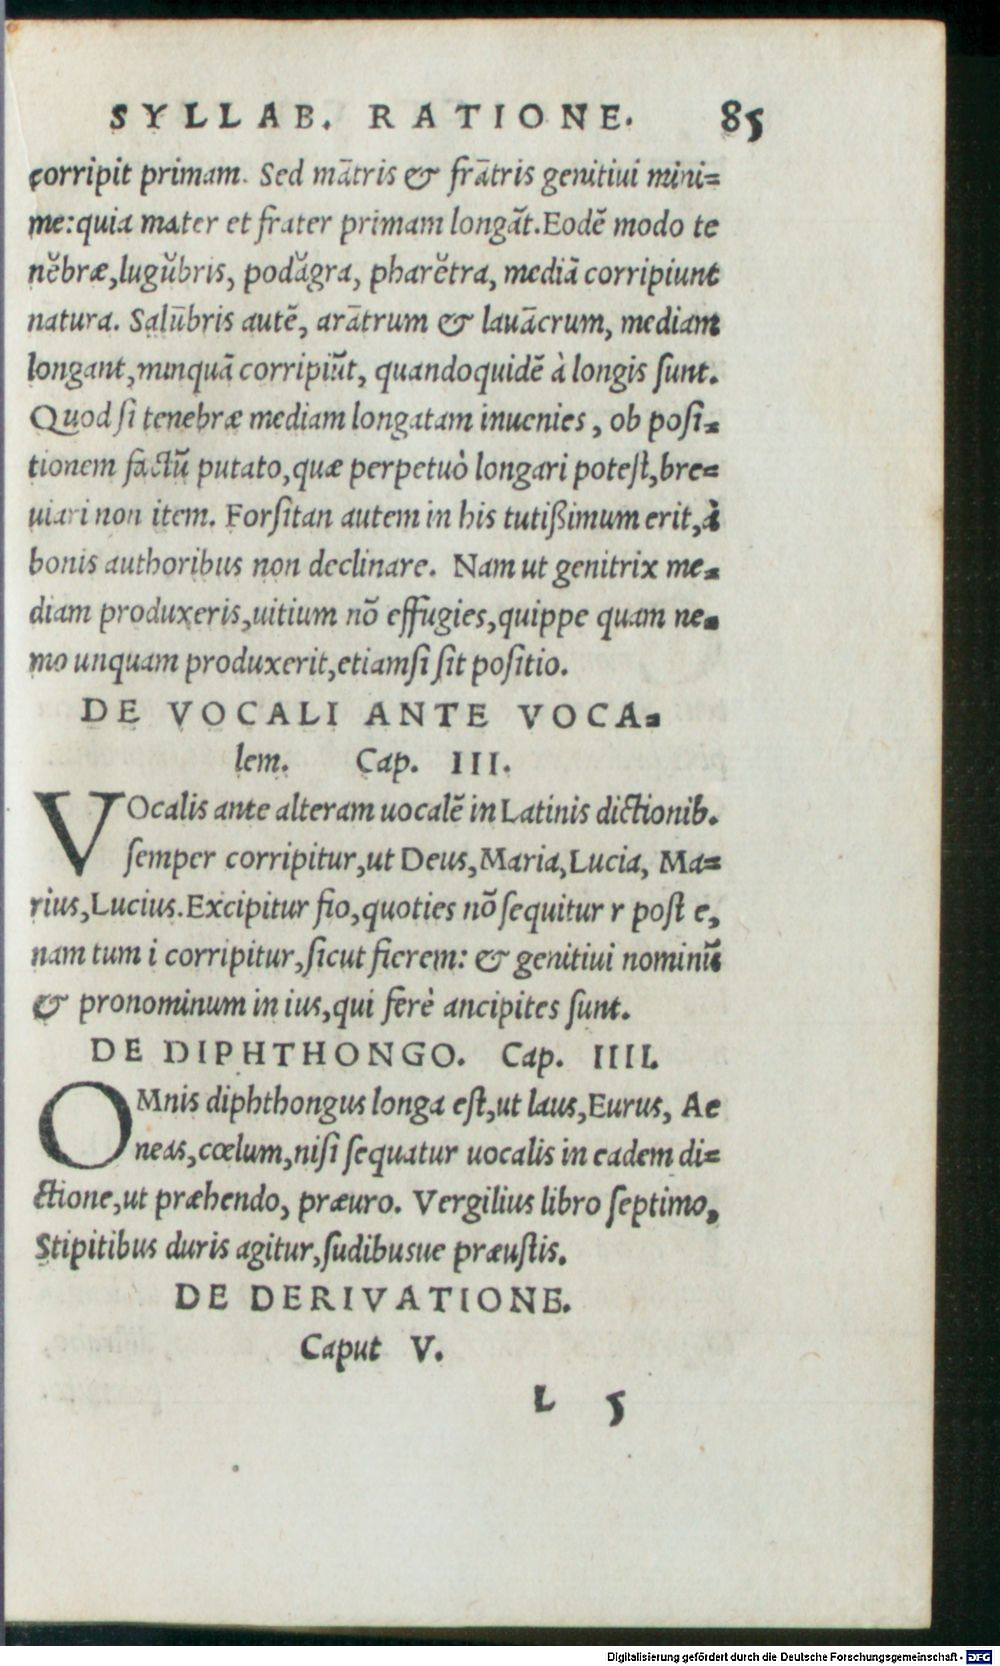 SYLLAB. RATIONE. 85
corripit primam. Sed mātris & frātris genitiui mini=
me:quia mater et frater primam longāt.Eodē modo te
nĕbræ,lugŭbris, podăgra, pharĕtra, mediā corripiunt
natura. Salūbris autē, arātrum & lauācrum, mediam
longant,nunquā corripiūt, quandoquidē à longis ſunt.
Quod ſi tenebræ mediam longatam inuenies, ob poſi=
tionem factū putato,quæ perpetuò longari poteſt,bre=
uiari non item. Forſitan autem in his tutißimum erit,à
bonis authoribus non declinare. Nam ut genitrix me=
diam produxeris,uitium nō effugies,quippe quam ne=
mo unquam produxerit,etiamſi ſit poſitio.
DE VOCALI ANTE VOCA=
lem. Cap. III.
VOcalis ante alteram uocalē in Latinis dictionib.
ſemper corripitur,ut Deus,Maria,Lucia, Ma=
rius,Lucius.Excipitur fio,quoties nō ſequitur r poſt e,
nam tum i corripitur,ſicut fierem: & genitiui nominū
& pronominum in ius,qui ferè ancipites ſunt.
DE DIPHTHONGO. Cap. IIII.
OMnis diphthongus longa eſt,ut laus,Eurus, Ae
neas,cœlum,niſi ſequatur uocalis in eadem di=
ctione,ut præhendo, præuro. Vergilius libro ſeptimo,
Stipitibus duris agitur,ſudibusue præuſtis.
DE DERIVATIONE.
Caput V.
L 5
Digitalisierung gefördert durch die Deutsche Forschungsgemeinschaft - DFG